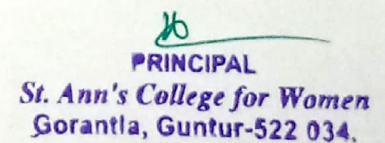 PRINCIPAL
St. Ann's College for Women
Gorantla, Guntur-522 034.